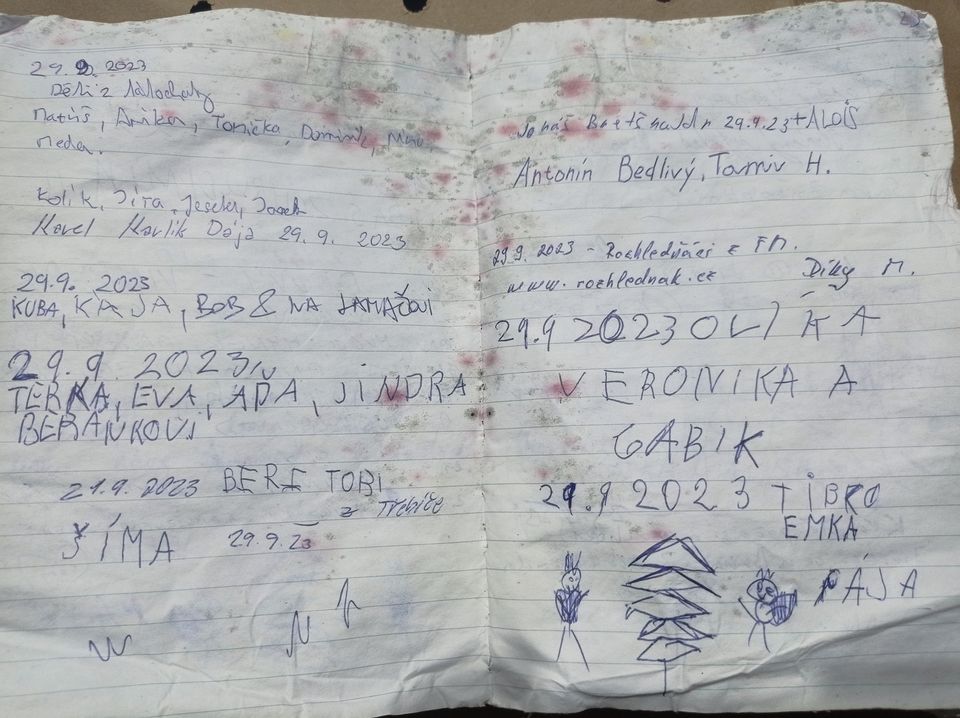 29.9. 2023
Děti z
Matúš, Anička, Tonička, Dominik,
Meda.
Kolík, Jíra,
Karel Karlík Dája 29. 9. 2023
29.9. 2023
KUBA, KAJA, BOB &
29.9. 2023
TERKA, EVA, ADA, JINDRA
BERÁNKOVI
29.9. 2023 BERI TOBI
z Třebíče
ŠÍMA 29.9.23
Jonáš 29.9.23 + ALOIS
Antonín Bedlivý, Tamiv H.
29.9. 2023 - Rozhledňáci z FM.
www.rozhlednak.cz Díky M.
29.9 2023 OLIKA
VERONIKA A
GABIK
29.9 2023 TIBKO
EMKA
PÁJA